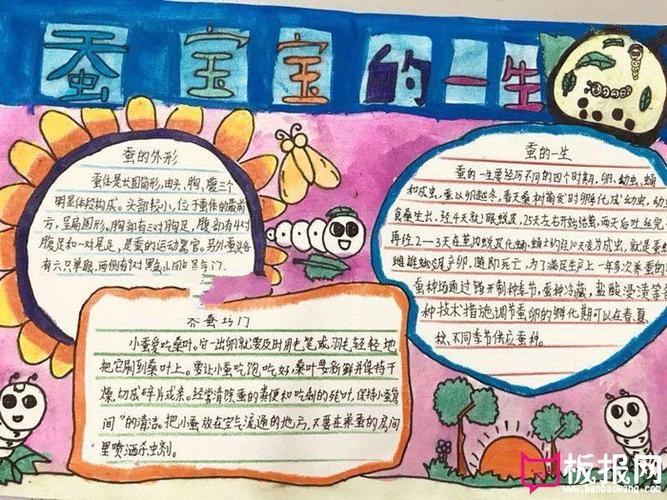 蚕宝宝的一生
蚕的外形
蚕体是长圆筒形,由头、胸、腹三个
明显体段构成。头部较小,位于整体的最前
方,呈扁圆形。胸部有三对胸足,腹部有4对
腹足和一对尾足,是蚕的运动器官。另外蚕头各
有六只单眼,两侧有9对黑
养蚕巧门
小蚕爱吃桑叶。它一出卵就要及时用毛笔或羽毛轻轻地
把它刷到桑叶上。要让小蚕吃饱吃好,桑叶要新鲜并保持干
燥,切成碎片或条。经常清除蚕的粪便和吃剩的残叶,保持小蚕"房
间"的清洁。把小蚕放在空气流通的地方,不要在养蚕的房间
里喷洒杀虫剂。
蚕的一生
蚕的一生要经历不同的四个时期,卵、幼虫、蛹
和成虫,蚕以卵越冬,春天桑树萌发时卵孵化成幼虫,幼虫
食桑生长,经4天就眠蜕皮,25天左右开始结茧,两天后吐丝完
再径2-3天在茧中蜕皮化蛹,蛹大约经10天变为成虫,就是蚕
雌雄蛾产卵,随即死亡,为了满足生产上一年多次养蚕的
蚕种场通过留养制种季节,蚕种冷藏,盐酸浸渍等
种技术措施调节蚕卵的孵化期可以在春、夏、
秋、不同季节供应蚕种。
板报网
www.banbaowang.com